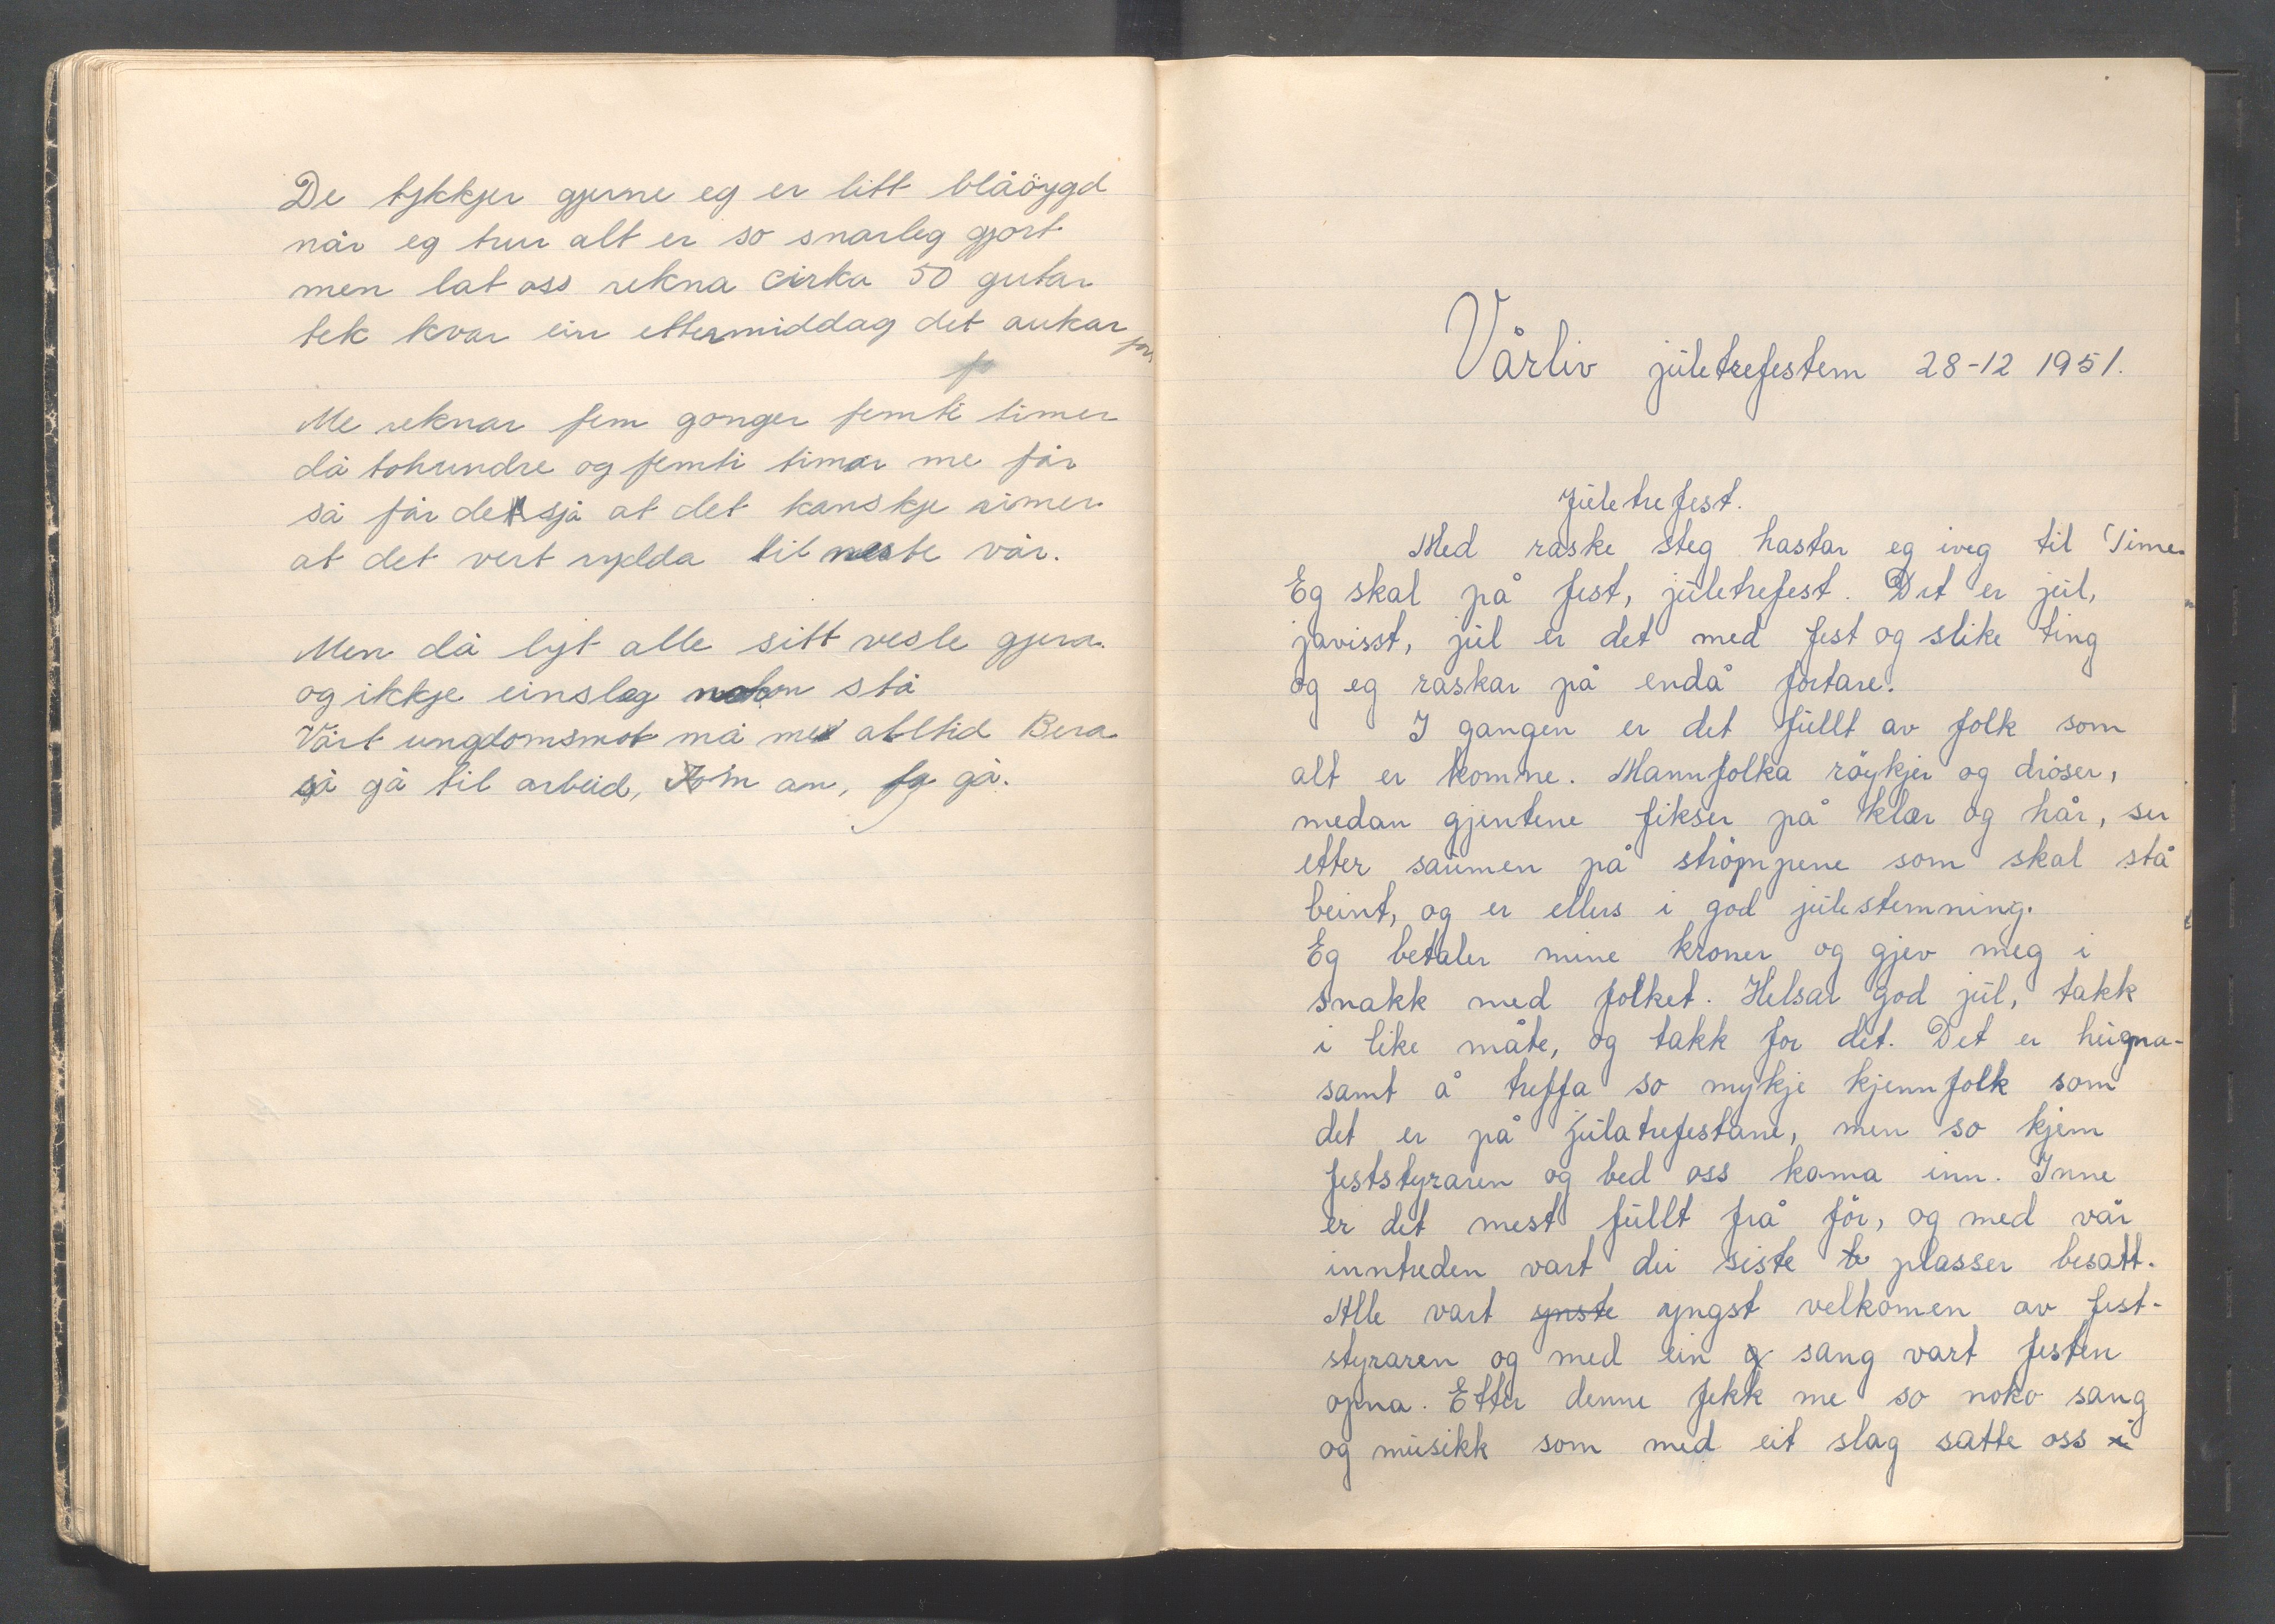 De tykkjer gjerne eg er litt blåöygd
når eg trur alt er so snarleg gjort
men lat oss rekna cirka 50 gutar
tek kvar ein ettermiddag det aukar
Me reknar fem gonger femti timer
då tohundre og femti timar me får
så får de sjå at det kanskje rimer
at det vert rydda til neste vår.
Men då lyt alle sitt vesle gjera
og ikkje einsleg noken stå
Vårt ungdomsmot må me alltid Bera
så gå til arbeid, kom an, gå.
Vårliv juletrefesten 28-12 1951.
Juletrefest.
Med raske steg hastar eg iveg til Time.
Eg skal på fest, juletrefest. Det er jul,
javisst, jul er det med fest og slike ting
og eg raskar på endå fortare.
I gangen er det fullt av folk som
alt er komne. Mannfolka röykjer og dröser,
medan gjentene fikser på klær og hår, ser
etter saumen på strömpene som skal stå
beint, og er ellers i god julestemning.
Eg betaler mine kroner og gjev meg i
snakk med folket. Helsar god jul, takk
i like måte, og takk for det. Det er hugna-
samt å treffa so mykje kjennfolk som
det er på julatrefestane, men so kjem
feststyraren og bed oss koma inn. Inne
er det mest fullt frå för, og med vår
inntreden vart dei siste plasser besatt.
Alle vart ynste yngst velkomen av fest-
styraren og med ein g sang vart festen
opna. Etter denne fekk me so noko sang
og musikk som med eit slag satte oss i